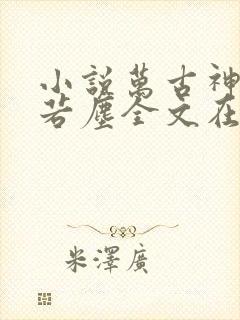 小說萬古神
若塵全文在
米澤廣